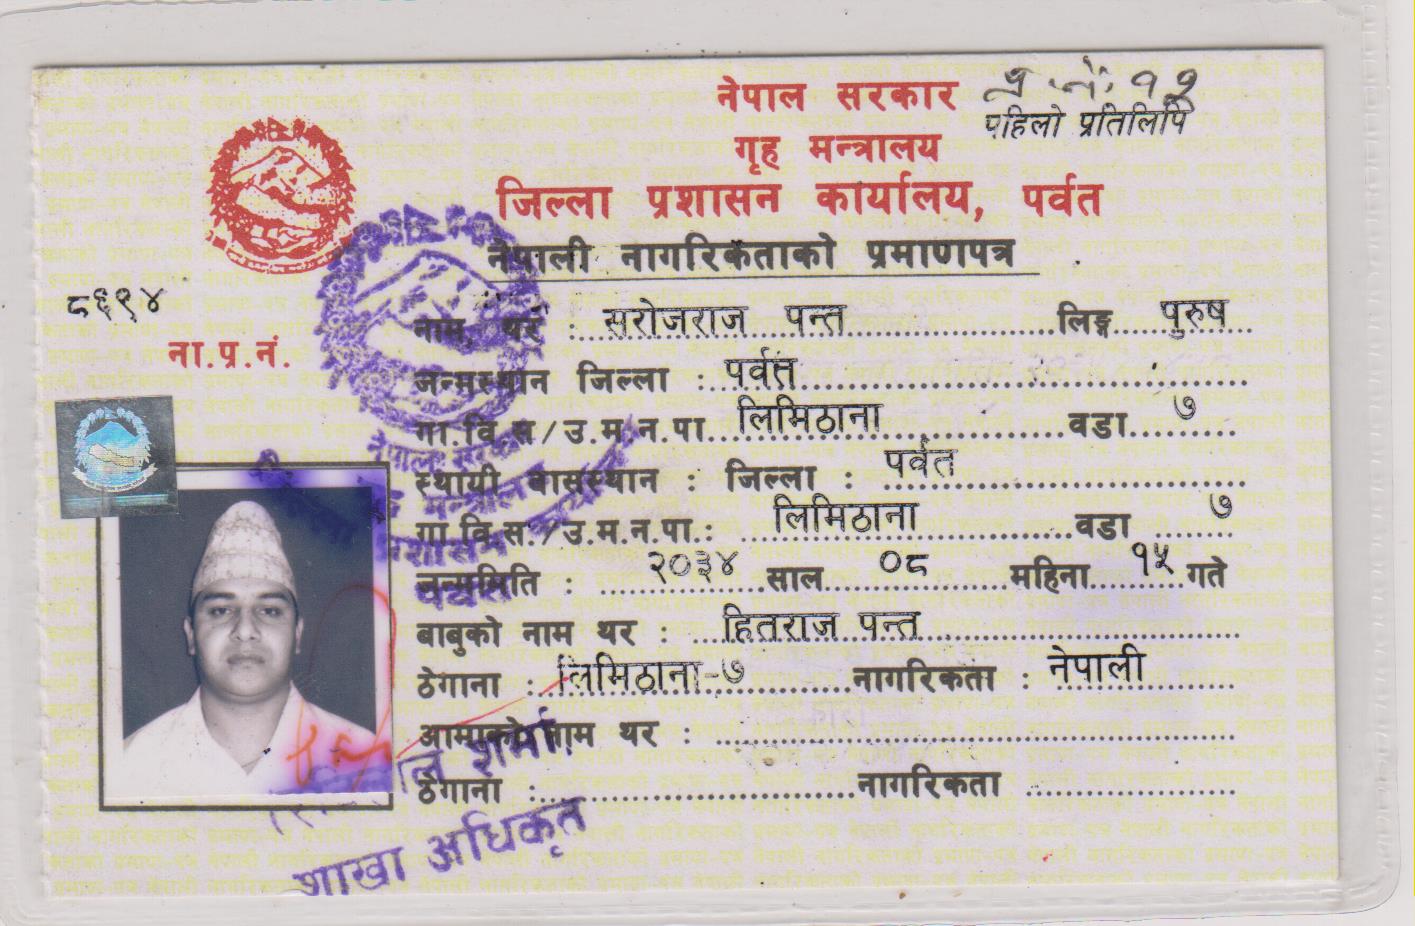 नेपाल सरकार
पहिलो प्रतिलिपि
गृह मन्त्रालय
जिल्ला प्रशासन कार्यालय, पर्वत
नेपाली नागरिकताको प्रमाणपत्र
८६९४
ना.प्र.नं.
नाम, थर : सरोजराज पन्त लिङ्ग पुरुष
जन्मस्थान जिल्ला : पर्वत
गा.वि.स/उ.म.न.पा. लिमिठाना वडा ७
स्थायी वासस्थान : जिल्ला : पर्वत
गा.वि.स./उ.म.न.पा.: लिमिठाना वडा ७
जन्ममिति : २०३४ साल ०८ महिना १५ गते
बाबुको नाम थर : हितराज पन्त
ठेगाना : लिमिठाना-७ नागरिकता : नेपाली
आमाको नाम थर :
ठेगाना : नागरिकता
शर्मा
शाखा अधिकृत